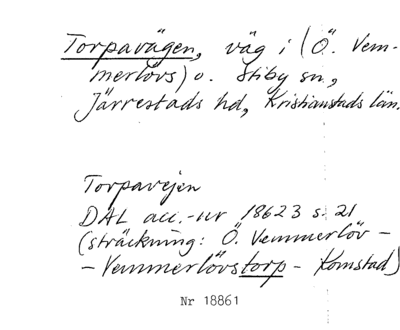 Torpavägen, väg i (Ö. Vem-
merlövs) o. Stiby sn,
Järrestads hd, Kristianstads län.
Torpavejen
DAL acc.-nr 18623 s. 21
(sträckning: Ö. Vemmerlöv -
- Vemmerlövstorp - Komstad)
Nr 18861